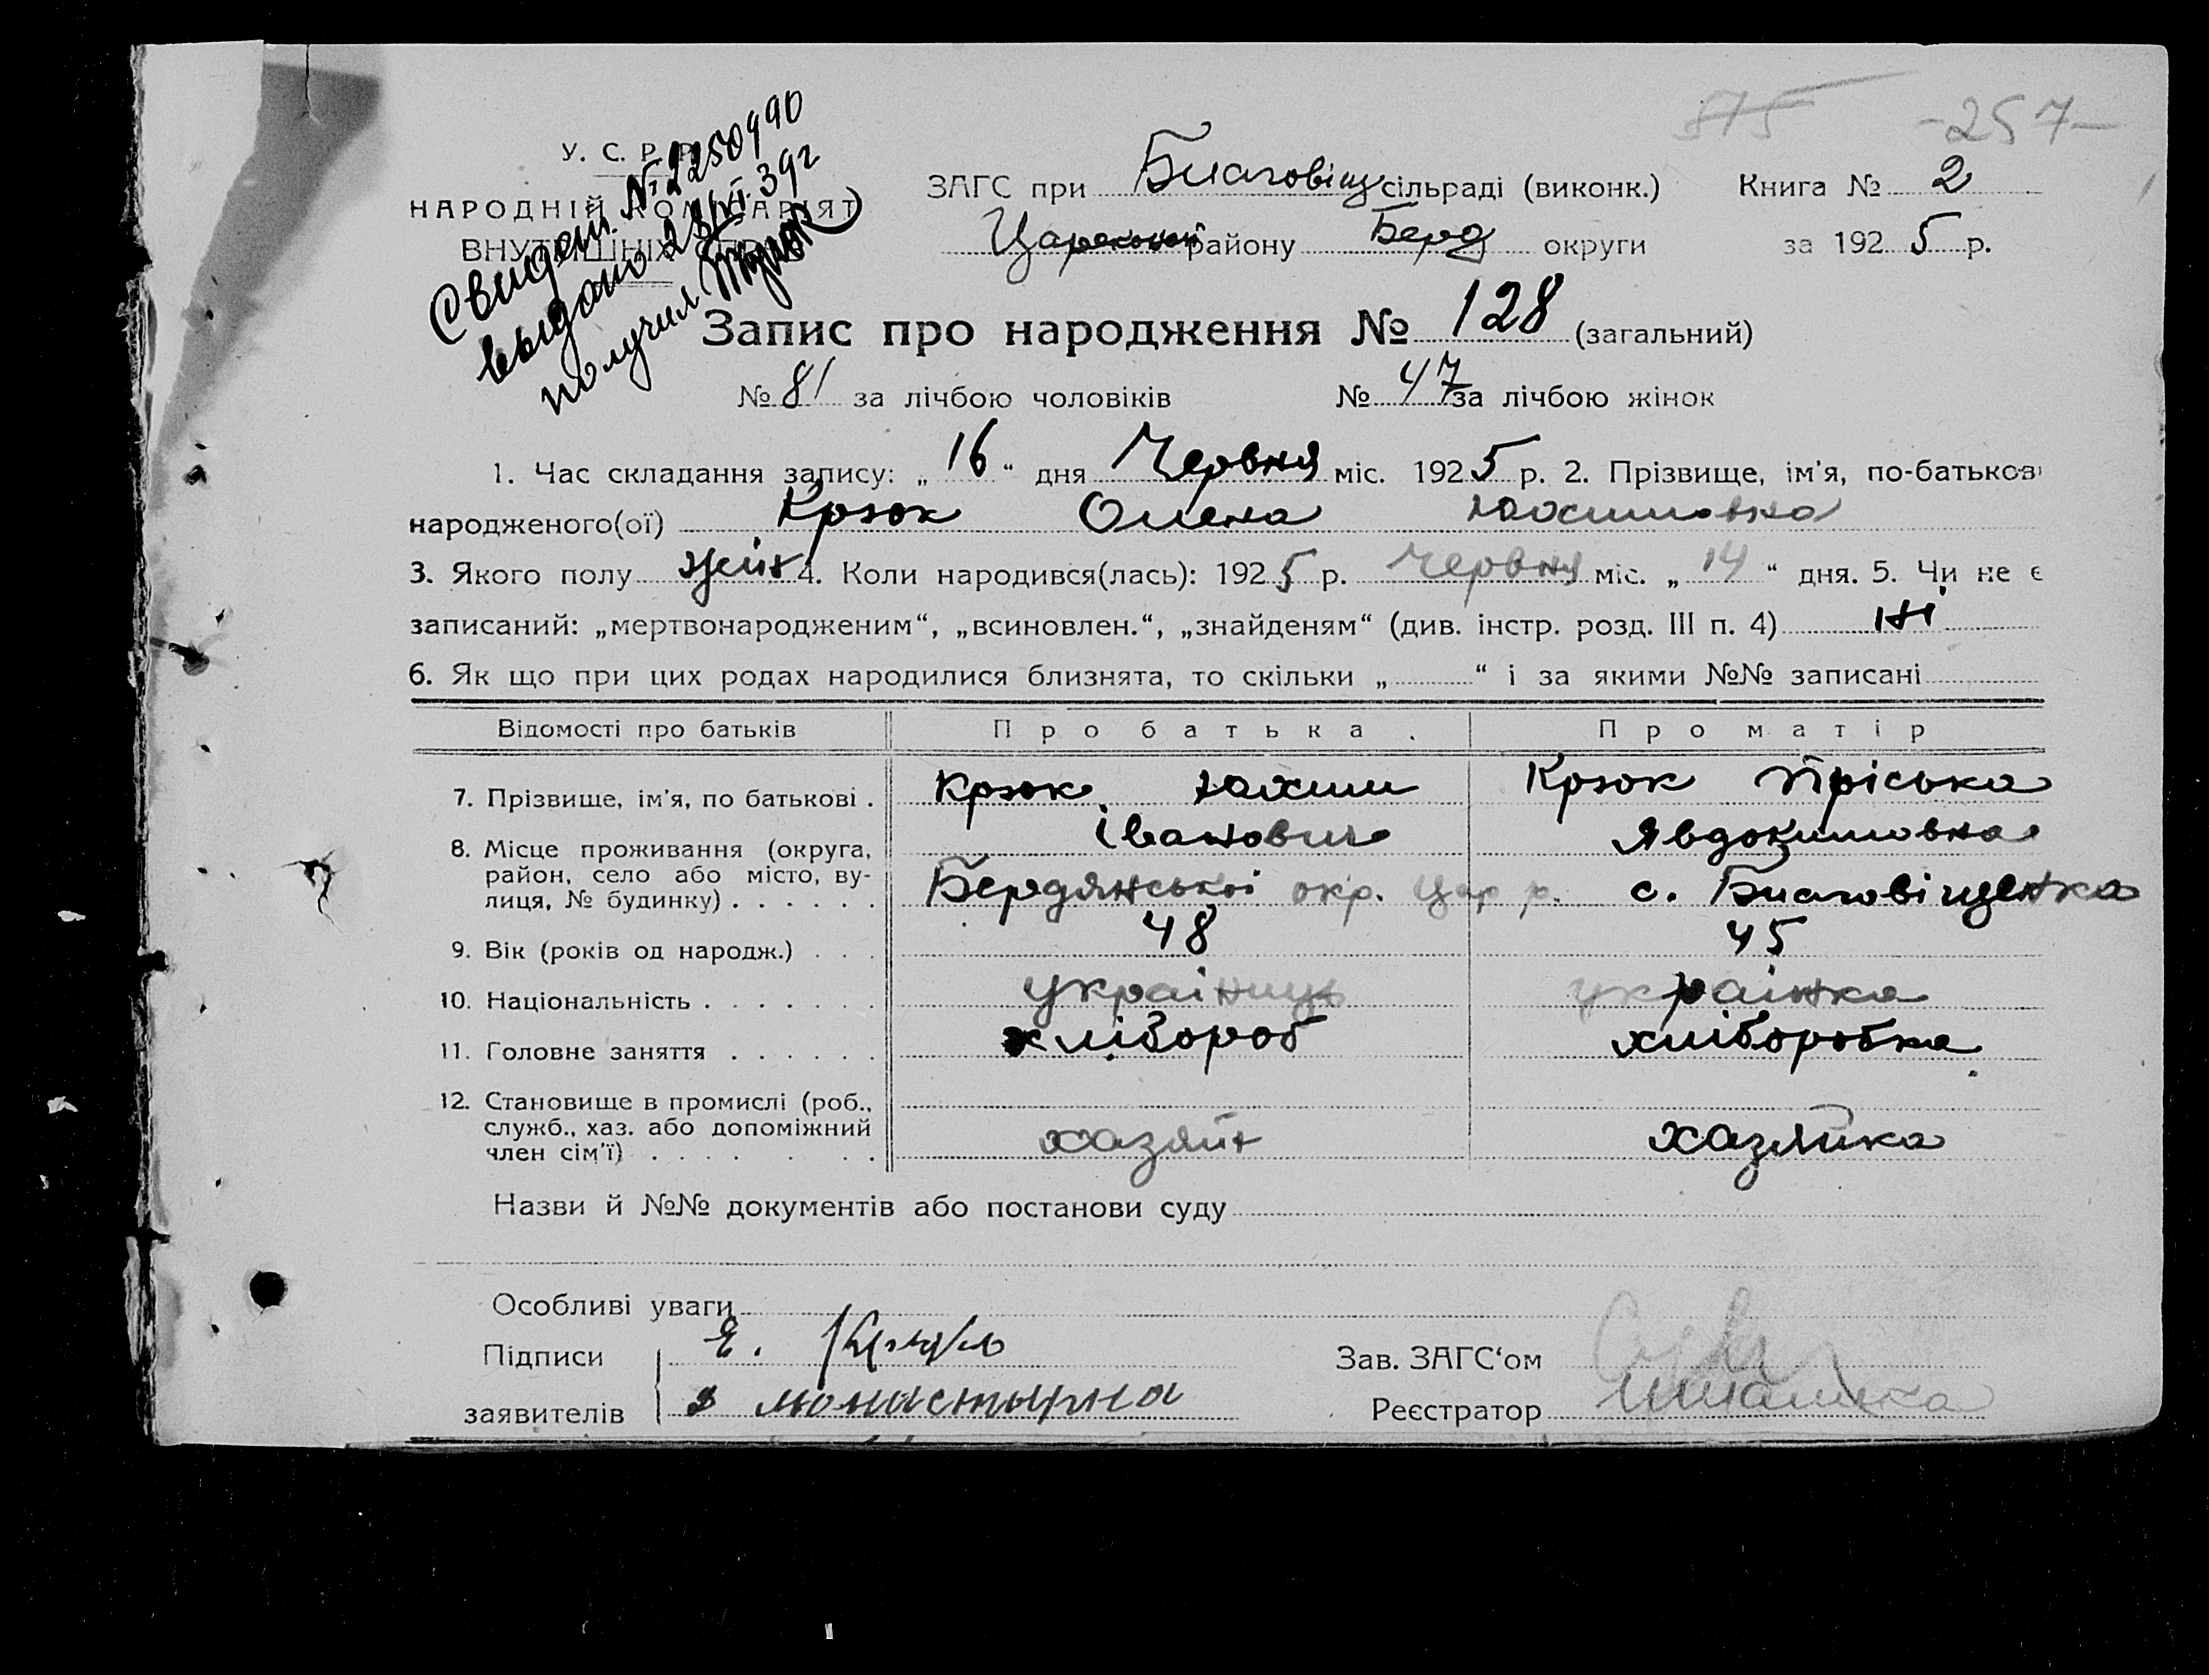 875 -257-
У. С. Р. Р.
НАРОДНІЙ КОМІСАРІЯТ
ВНУТРІШНІХ СПРАВ
Свидет. №2250990
выдано 23/VII.39г
получил (Крюк)
ЗАГС при Благовіщ сільраді (виконк.) Книга № 2
району Берд округи за 1925 р.
Запис про народження № 128 (загальний)
№ 81 за лічбою чоловіків № 47 за лічбою жінок
1. Час складання запису: „16“ дня Червня міс. 1925 р. 2. Прізвище, ім'я, по-батькові
народженого(ої) Крюк Олена Юхимовна
3. Якого полу жін 4. Коли народився(лась): 1925 р. Червня міс. „14“ дня. 5. Чи не є
записаний: „мертвонародженим“, „всиновлен.“, „знайденям“ (див. інстр. розд. III п. 4) ні
6. Як що при цих родах народилися близнята, то скільки „ “ і за якими №№ записані
Відомості про батьків Про батька. Про матір
7. Прізвище, ім'я, по батькові. Крюк Юхим Крюк Пріська
Іванович Явдокимовна
8. Місце проживання (округа,
район, село або місто, ву-
лиця, № будинку) Бердянської окр. Цар р. с. Благовіщенка
9. Вік (років од народж.) 48 45
10. Національність українць українка
11. Головне заняття хлібороб хліборобка
12. Становище в промислі (роб.,
служб., хаз. або допоміжний
член сім'ї) хазяїн хазяйка
Назви й №№ документів або постанови суду
Особливі уваги
Підписи Е. Крюк Зав. ЗАГС‘ом
заявителів монастырна Реєстратор